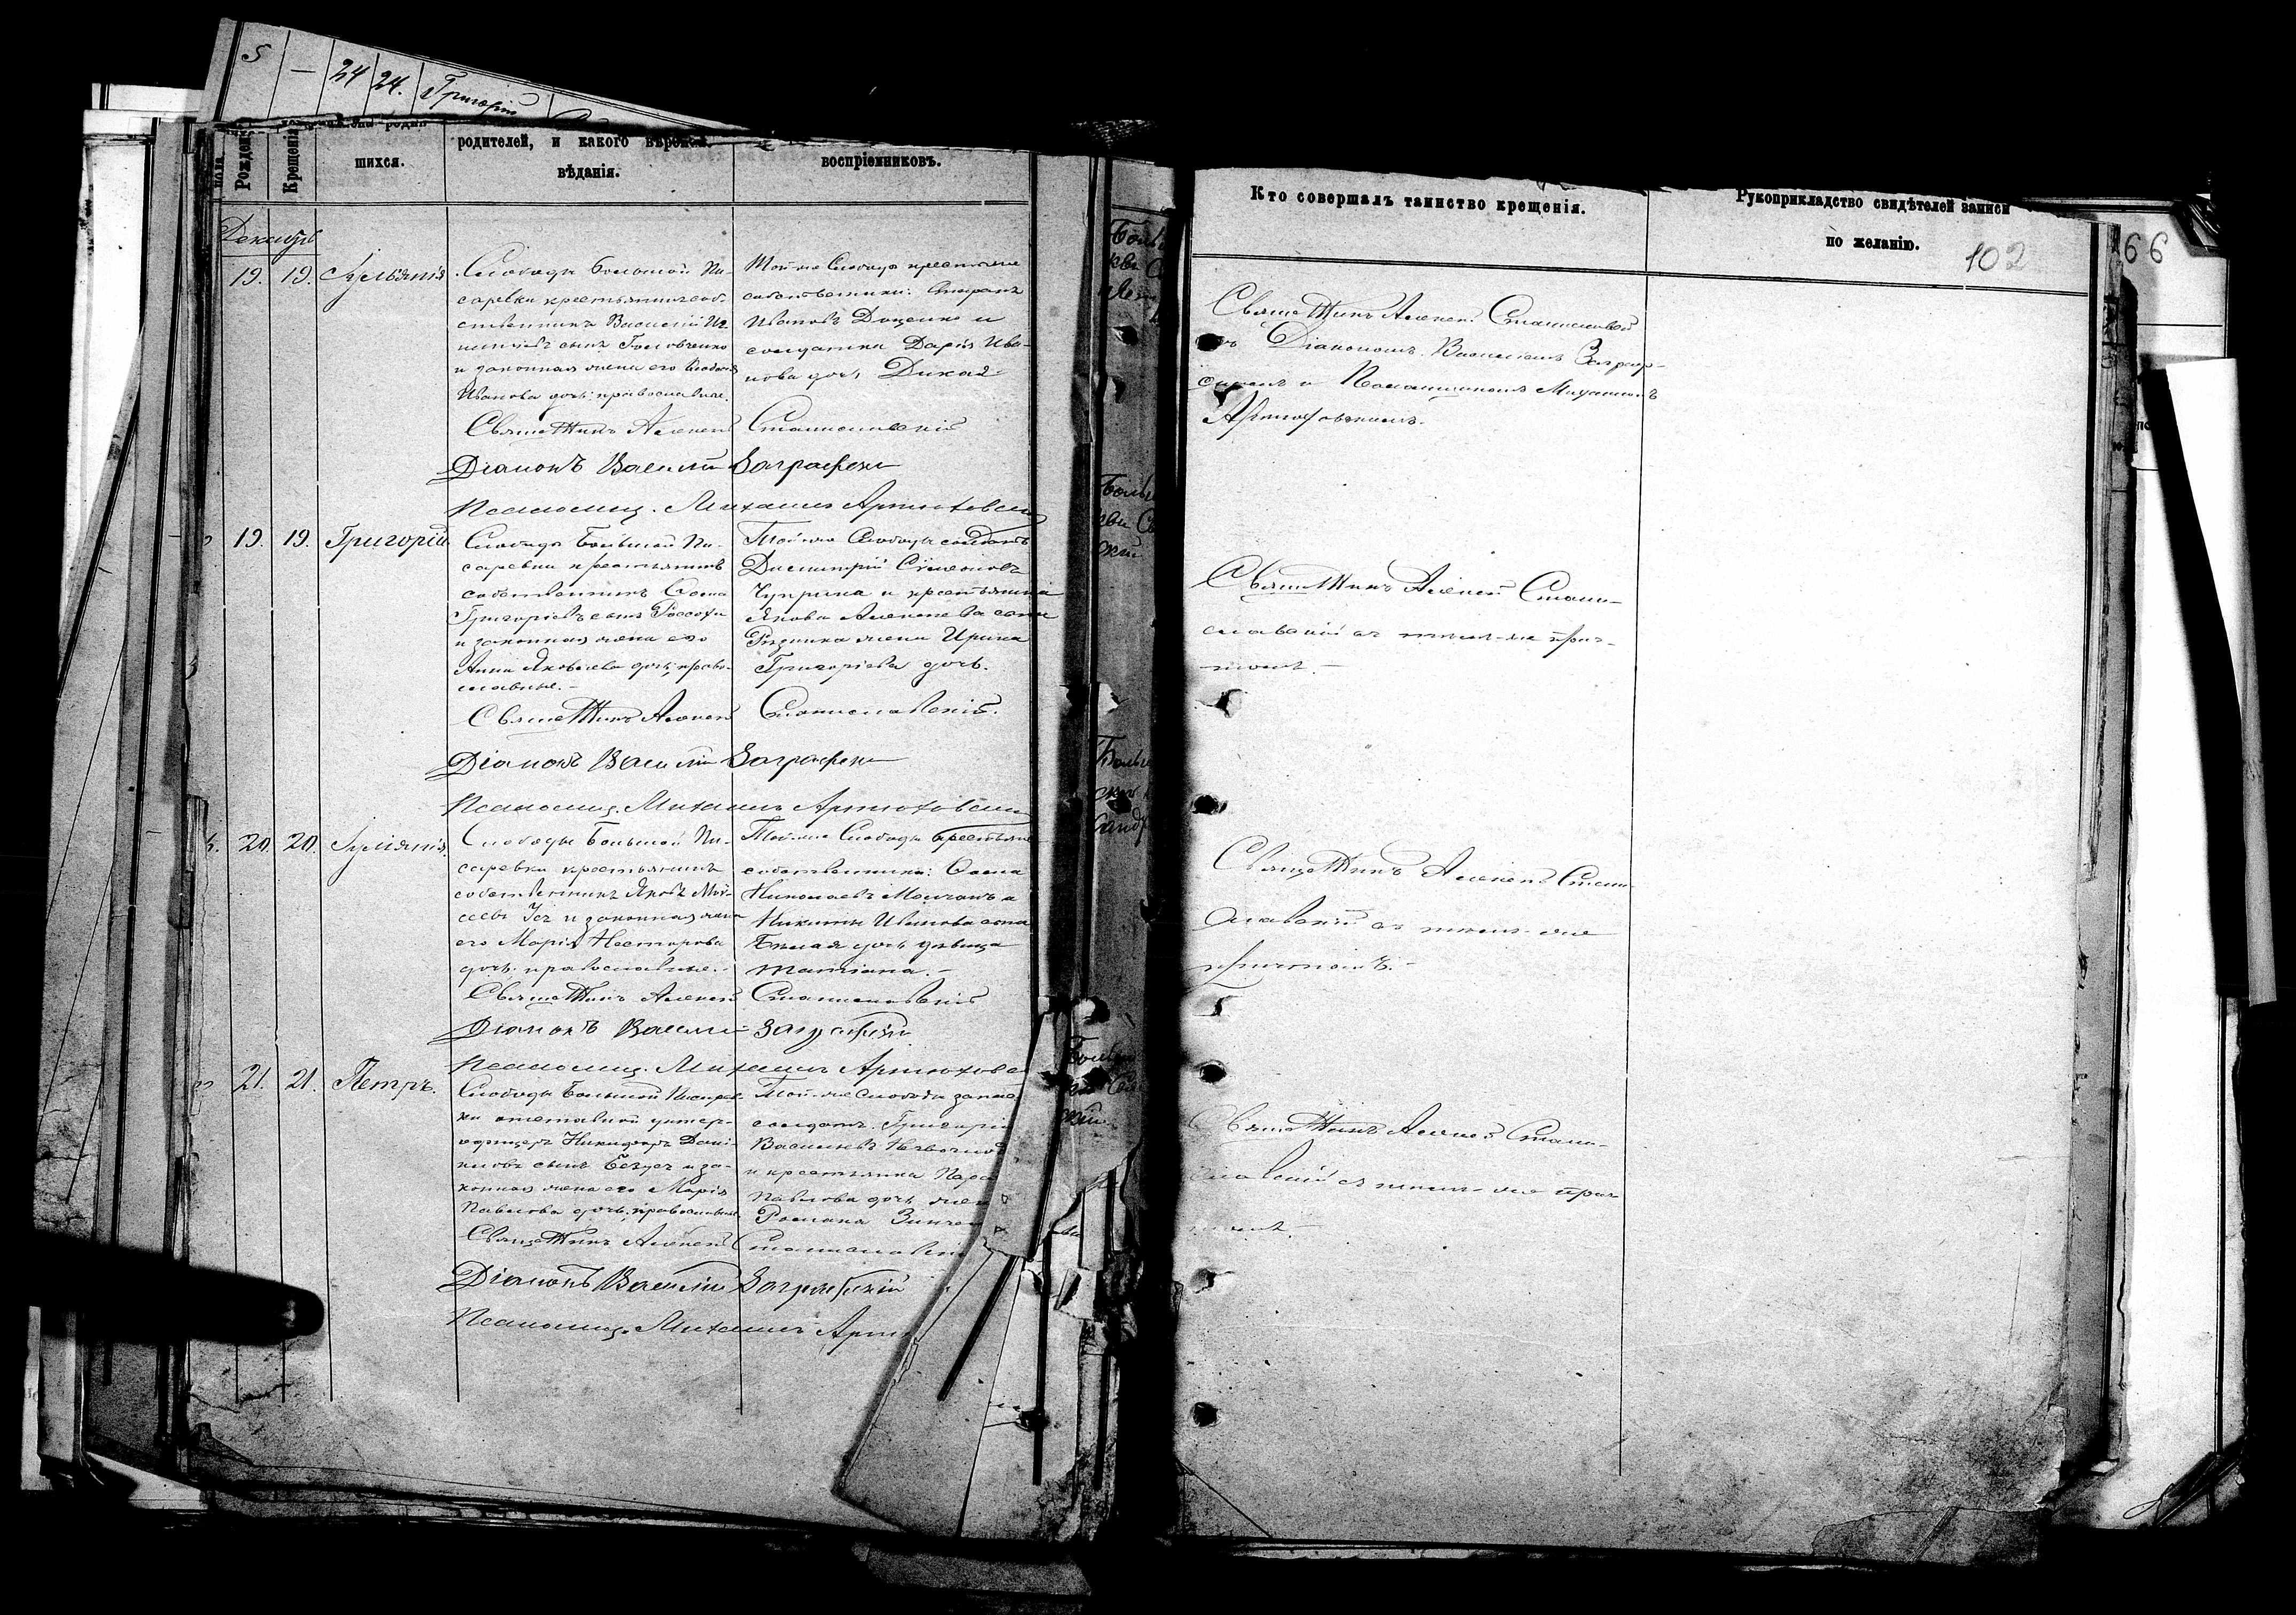 5 — 24 24. Григорій
Рожденія
Крещенія
шихся.
родителей, и какого вѣроиспо-
вѣданія.
воспріемниковъ.
Декабрь
19. 19. Іуліанія
Слободы Большой Пи-
саревки крестьянинъ соб-
ственникъ Василій
сынъ Головченко
и законная жена его
Иванова дочь; православные.
Той-же Слободы крестьяне
собственники: Стефанъ
Ивановъ Доценко и
солдатка Дарія Ива-
нова дочь Дикая
Священникъ Алексей Станиславскій
Діаконъ Василій Заграфскій
Псаломщ. Михаилъ Артюховскій
19. 19. Григорій
Слободы Большой Пи-
саревки крестьянинъ
собственникъ Савва
Григорьевъ сынъ Россоха
и законная жена его
Анна Яковлева дочь; право-
славные.—
Той-же Слободы солдатъ
Димитрій Симеоновъ
Чуприна и крестьянина
Якова Алексеева сына
Резника жена Ирина
Григоріева дочь.
Священникъ Алексей Станиславскій.
Діаконъ Василій Заграфскій
Псаломщ. Михаилъ Артюховскій
20. 20. Іуліанія.
Слободы Большой Пи-
саревки крестьянинъ
собственникъ Яковъ Мой-
сеевъ Усъ и законная жена
его Марія Несторова
дочь; православные.—
Той-же Слободы крестьяне
собственники: Савва
Николаевъ Молчанъ и
Никиты Иванова сына
дочь девица
Татіана.—
Священникъ Алексей Станиславскій
Діаконъ Василій Заграфскій
Псаломщ. Михаилъ Артюховс
21. 21. Петръ.
Слободы Большой Писарев-
ки отставной унтер-
офицеръ Никифоръ Дани-
ловъ сынъ Безусъ и за-
конная жена его Марія
Павлова дочь; православные.
Той-же Слободы запас
солдатъ Григорій
Васильевъ
и крестьянка Парас
Павлова дочь жен
Романа Зинчен
Священникъ Алексей Станиславскій
Діаконъ Василій Заграфскій
Псаломщ. Михаилъ Артю
Кто совершалъ таинство крещенія.
Рукоприкладство свидѣтелей записи
по желанію.
102
66
Священникъ Алексей Станиславскій
съ Діакономъ Василіемъ Заграф-
скимъ и Псаломщикомъ Михаиломъ
Артюховскимъ.
Священникъ Алексей Стани-
славскій съ темъ-же прич-
томъ.—
Священникъ Алексей Стани-
славскій съ темъ-же
причтомъ.—
Священникъ Алексей Стани-
славскій съ темъ-же прич-
томъ.—